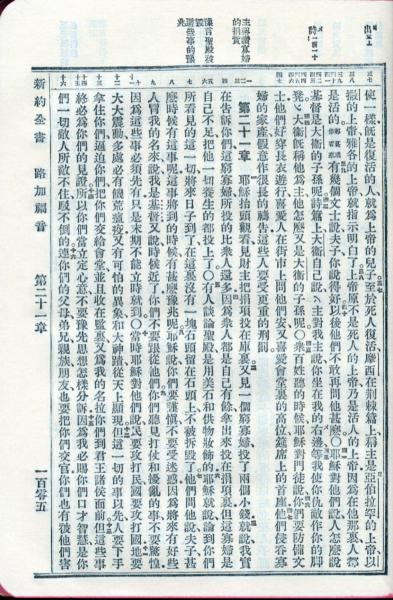 詩一百一十
主稱讚寡婦的捐資
豫言聖殿被毀
使一樣旣是復活的人就爲上帝的兒子至於死人復活摩西在荊棘篇上稱主是亞伯拉罕的上帝以
撒的上帝雅各的上帝就指示明白了上帝原不是死人的上帝乃是活人的上帝因爲在他那裏人都
是活的有幾個文士說夫子你說得好以後他們不敢再問他甚麽〇耶穌對他們說人怎麽說
基督是大衞的子孫呢詩篇上大衞自己說主對我主說你坐在我的右邊等我使你仇敵作你的脚
凳大衞旣稱他爲主他怎麽又是大衞的子孫呢〇衆百姓聽的時候耶穌對門徒說你們要防備文
士他們好穿長衣遊行喜愛人在街市上問他們安又喜愛會堂裏的高位筵席上的首座他們侵吞寡
婦的家產假意作很長的禱告這些人要受更重的刑罰
第二十一章 耶穌抬頭觀看見財主把捐項投在庫裏又見一個窮寡婦投了兩個小錢就說我實
在告訴你們這窮寡婦所投的比衆人還多因爲衆人都是自己有餘拿出來投在捐項裏但這寡婦是
自己不足把他一切養生的都投上了〇有人談論聖殿是用美石和供物妝飾的耶穌就說論到你們
所看見的這一切將來日子到了在這裏沒有一塊石頭留在石頭上不被拆毀了他們問他說夫子甚
麽時候有這事呢這事將到的時候有甚麽豫兆呢耶穌說你們要謹愼不要受迷惑因爲將來有好些
人冒我的名來說我是基督又說時候近了你們不要跟從他們你們聽見打仗和擾亂的事不要驚惶
因爲這些事必須先有只是末期不能立時就到〇當時耶穌對他們說民要攻打民國要攻打國地要
大大震動多處必有饑荒瘟疫又有可怕的異象和大神蹟從天上顯現但這一切的事以先人要下手
拿住你們逼迫你們把你們交給會堂並且收在監裏又爲我的名拉你們到君王諸侯面前但這些事
終必爲你們的見證所以你們當立定心意不要豫先思想怎樣分訴因爲我必賜你們口才智慧是你
們一切敵人所敵不住駁不倒的連你們的父母弟兄親族朋友也要把你們交官你們也有被他們害
新約全書 路加福音 第二十一章 一百零五